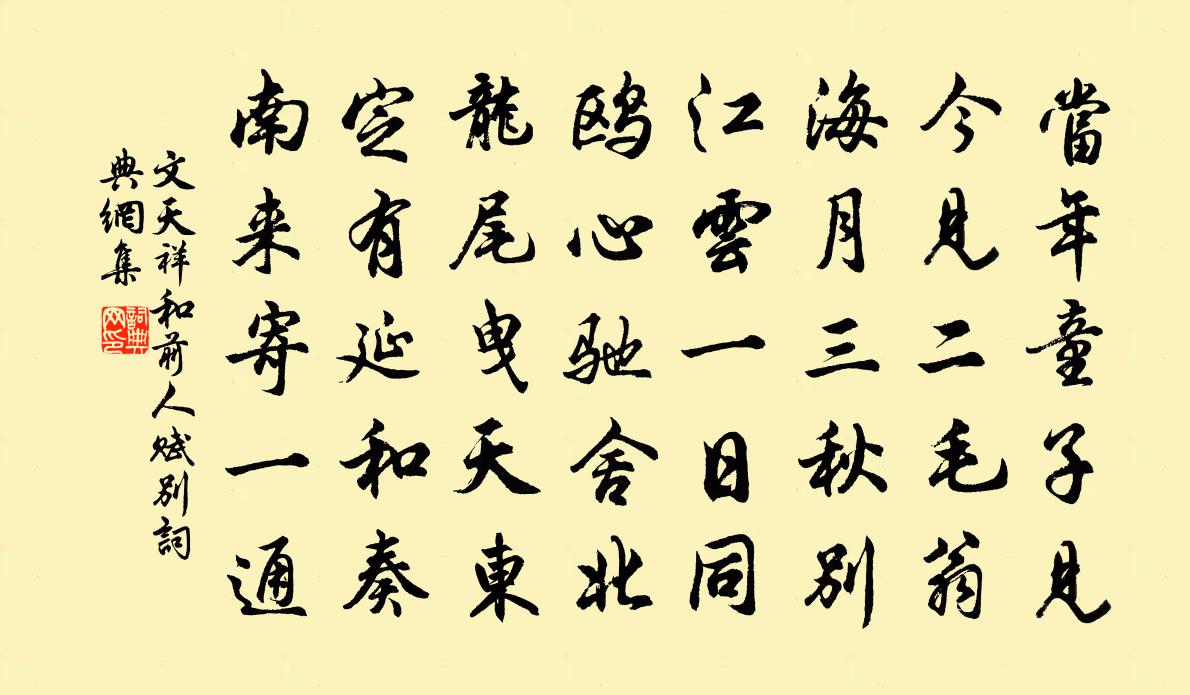 當年童子見
今見二毛翁
海月三秋别
江雲一日同
鸥心驰舍北
龍尾曳天東
定有延和奏
南来寄一通
文天祥和前人赋别詞
典網集
詞典
网印